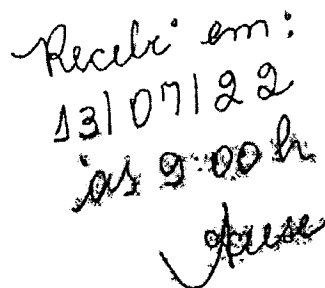 Recebi em:
13/07/22
às 9:00h